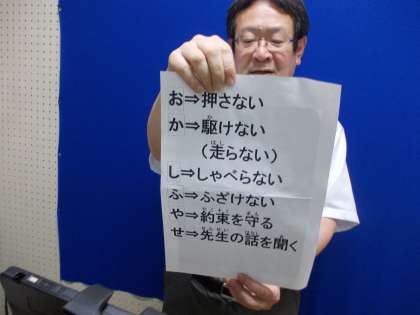 お⇒押さない
か⇒駆けない
（走らない）
し⇒しゃべらない
ふ⇒ふざけない
や⇒約束を守る
せ⇒先生の話を聞く